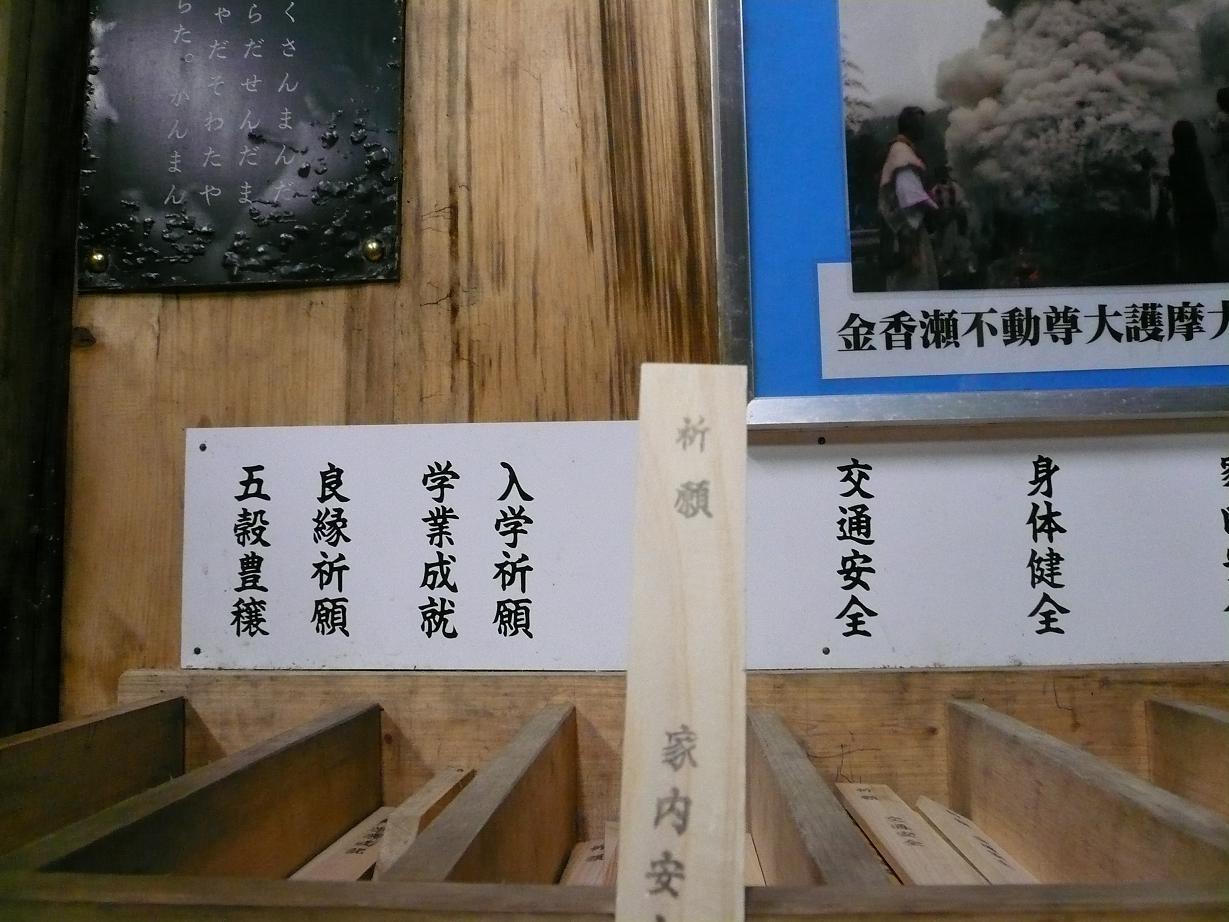 くさんまんだ
らだせんだま
ゃだそわたや
らた。かんまん
金香瀬不動尊大護摩
身体健全
交通安全
祈願
家内安
入学祈願
学業成就
良縁祈願
五穀豊穣
祈願
交通安全